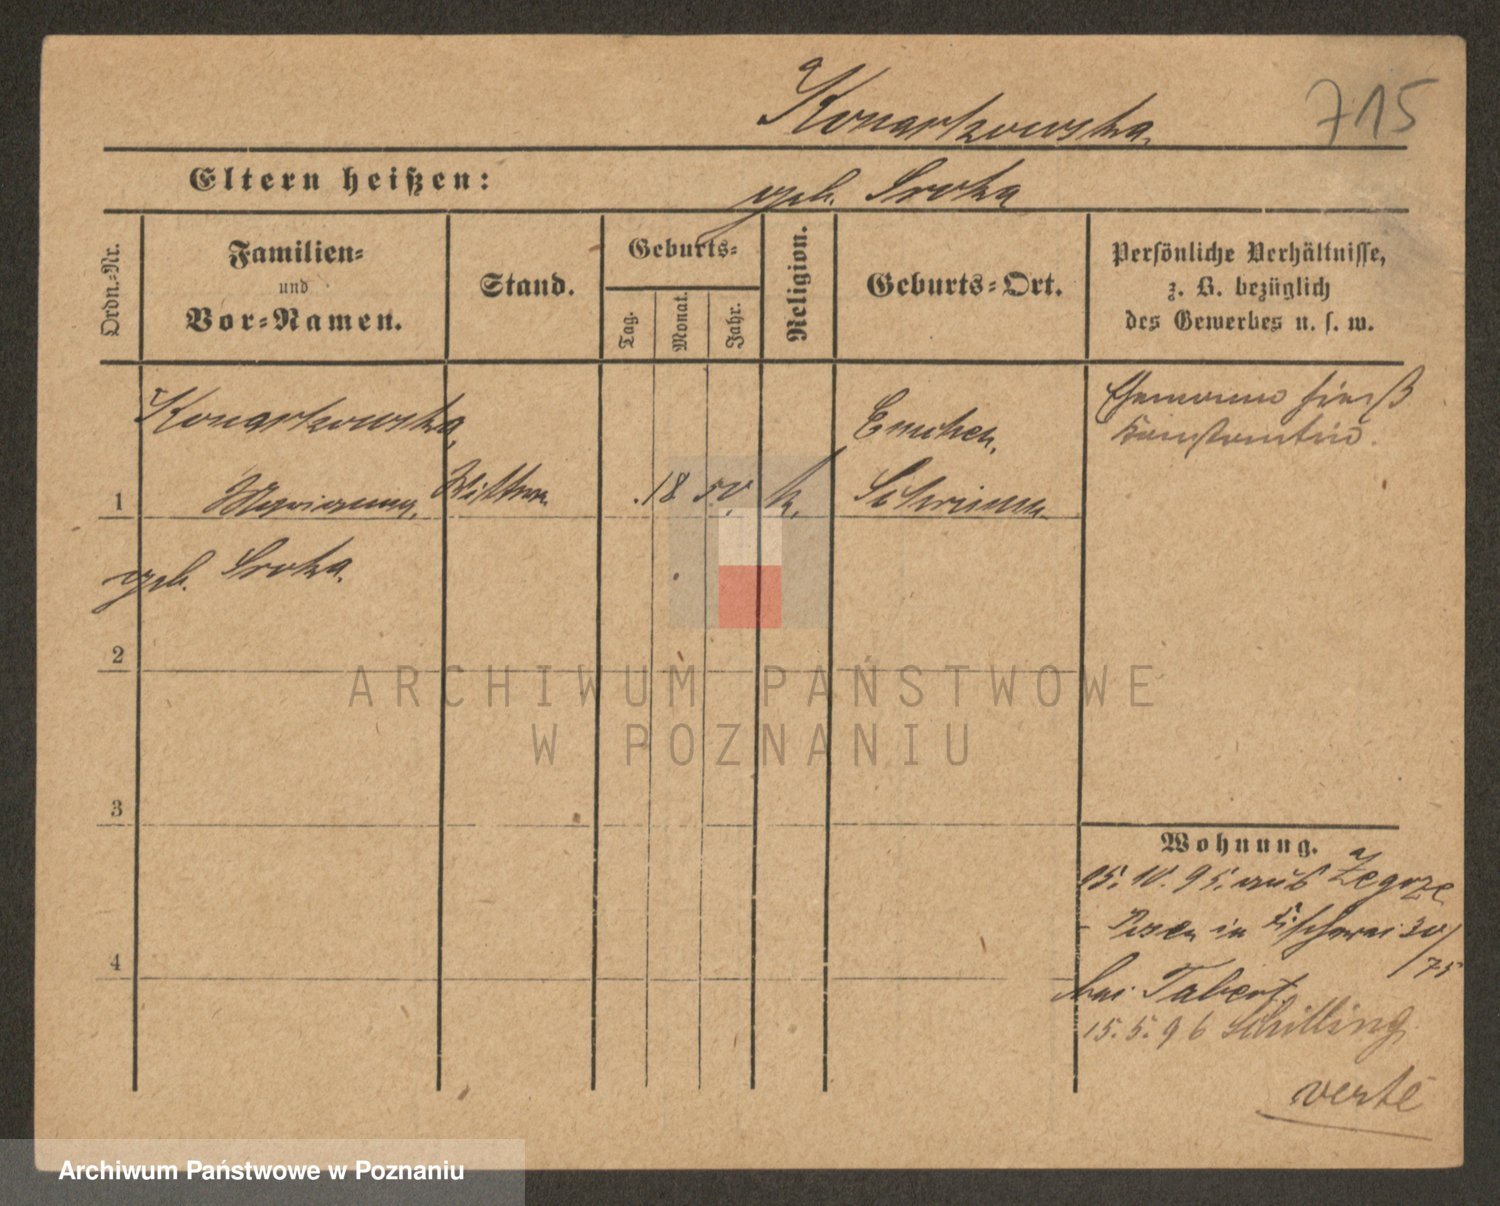 Konarkowska
715
Eltern heißen:
geb. Sroka
Ordn.-Nr.
Familien-
und
Vor-Namen.
Stand.
Geburts-
Tag.
Monat.
Jahr.
Religion.
Geburts-Ort.
Persönliche Verhältnisse,
z. B. bezüglich
des Gewerbes u. s. w.
Konarkowska,
Emchen,
Ehemann hieß
Konstantin.
1
Maryanna,
Wittwe
18
50,
k,
Schrimm
geb. Sroka,
2
3
4
Wohnung.
15. 10. 95. aus Żegrze
- Posen in Fischerei 30/
/75
bei Tabert,
15. 5. 96 Schilling
verte
ARCHIWUM PAŃSTWOWE
W POZNANIU
Archiwum Państwowe w Poznaniu